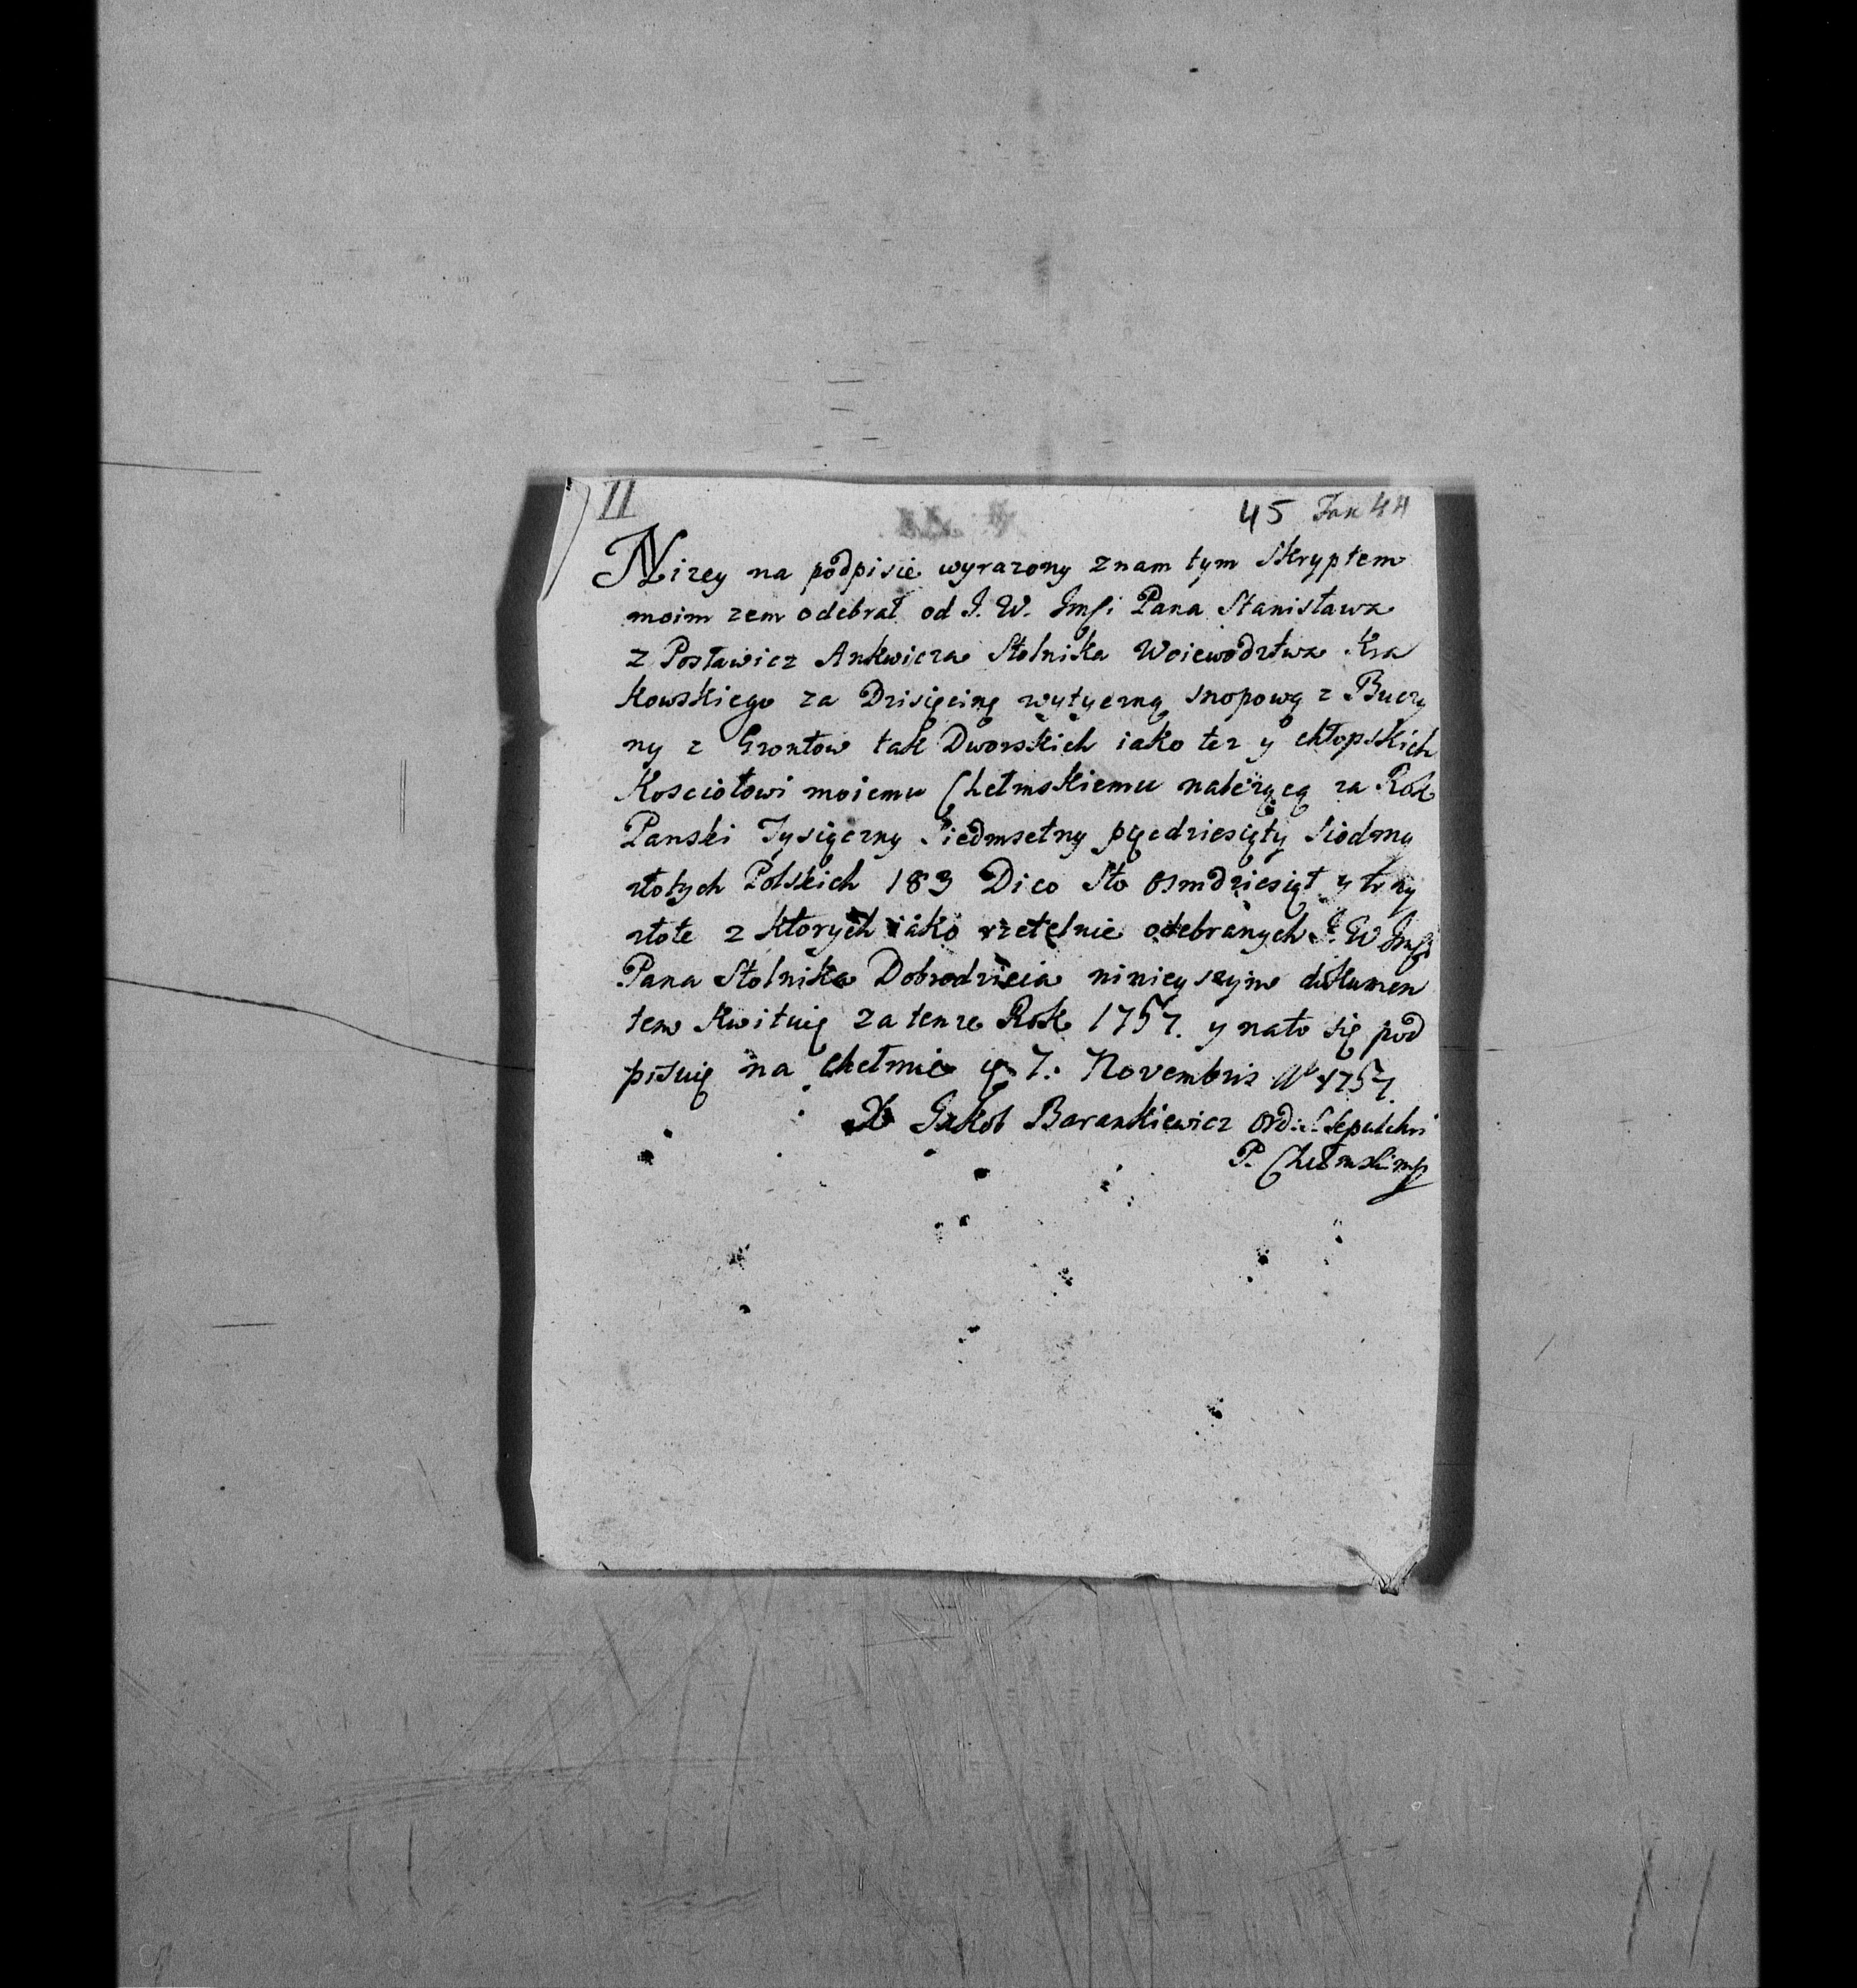 II
45 Fan 44
Nizey na podpisie wyrazony znam tym skryptem
moim zem odebrał od J. W. Jmsci Pana Stanisława
z Posławicz Ankwicza Stolnika Woiewodztwa Kra
kowskiego za Dzisięcinę wytyczną snopową z Buczy
ny z Grontow tak Dworskich iako tez y chłopskich
Kosciołowi moiemu Chełmskiemu nalezącą za Rok
Panski Tysiączny Siedmsetny pięcdziesiąty Siodmy
złotych Polskich 183 Dico Sto osmdziesiąt y trzy
złote z ktorych iako rzetelnie odebranych J. W Jmsci
Pana Stolnika Dobrodzieia ninieyszym dokumen
tem kwituię za tenze Rok 1757. y nato się pod
pisuię na Chełmie 7. Novembris Ao 1757.
X Jakob Barankiewicz Ord: S. Sepulchri
P. Chełmski mp